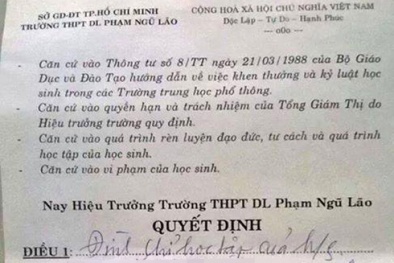 SỞ GD-ĐT TP.HỒ CHÍ MINH
TRƯỜNG THPT DL PHẠM NGŨ LÃO
CỘNG HOÀ XÃ HỘI CHỦ NGHĨA VIỆT NAM
Độc Lập - Tự Do - Hạnh Phúc
--- o0o ---
- Căn cứ vào Thông tư số 8/TT ngày 21/03/1988 của Bộ Giáo
Dục và Đào Tạo hướng dẫn về việc khen thưởng và kỷ luật học
sinh trong các Trường trung học phổ thông.
- Căn cứ vào quyền hạn và trách nhiệm của Tổng Giám Thị do
Hiệu trưởng trường quy định.
- Căn cứ vào quá trình rèn luyện đạo đức, tư cách và quá trình
học tập của học sinh.
- Căn cứ vào vi phạm của học sinh.
Nay Hiệu Trưởng Trường THPT DL Phạm Ngũ Lão
QUYẾT ĐỊNH
ĐIỀU 1: Đình chỉ học tập của h/s